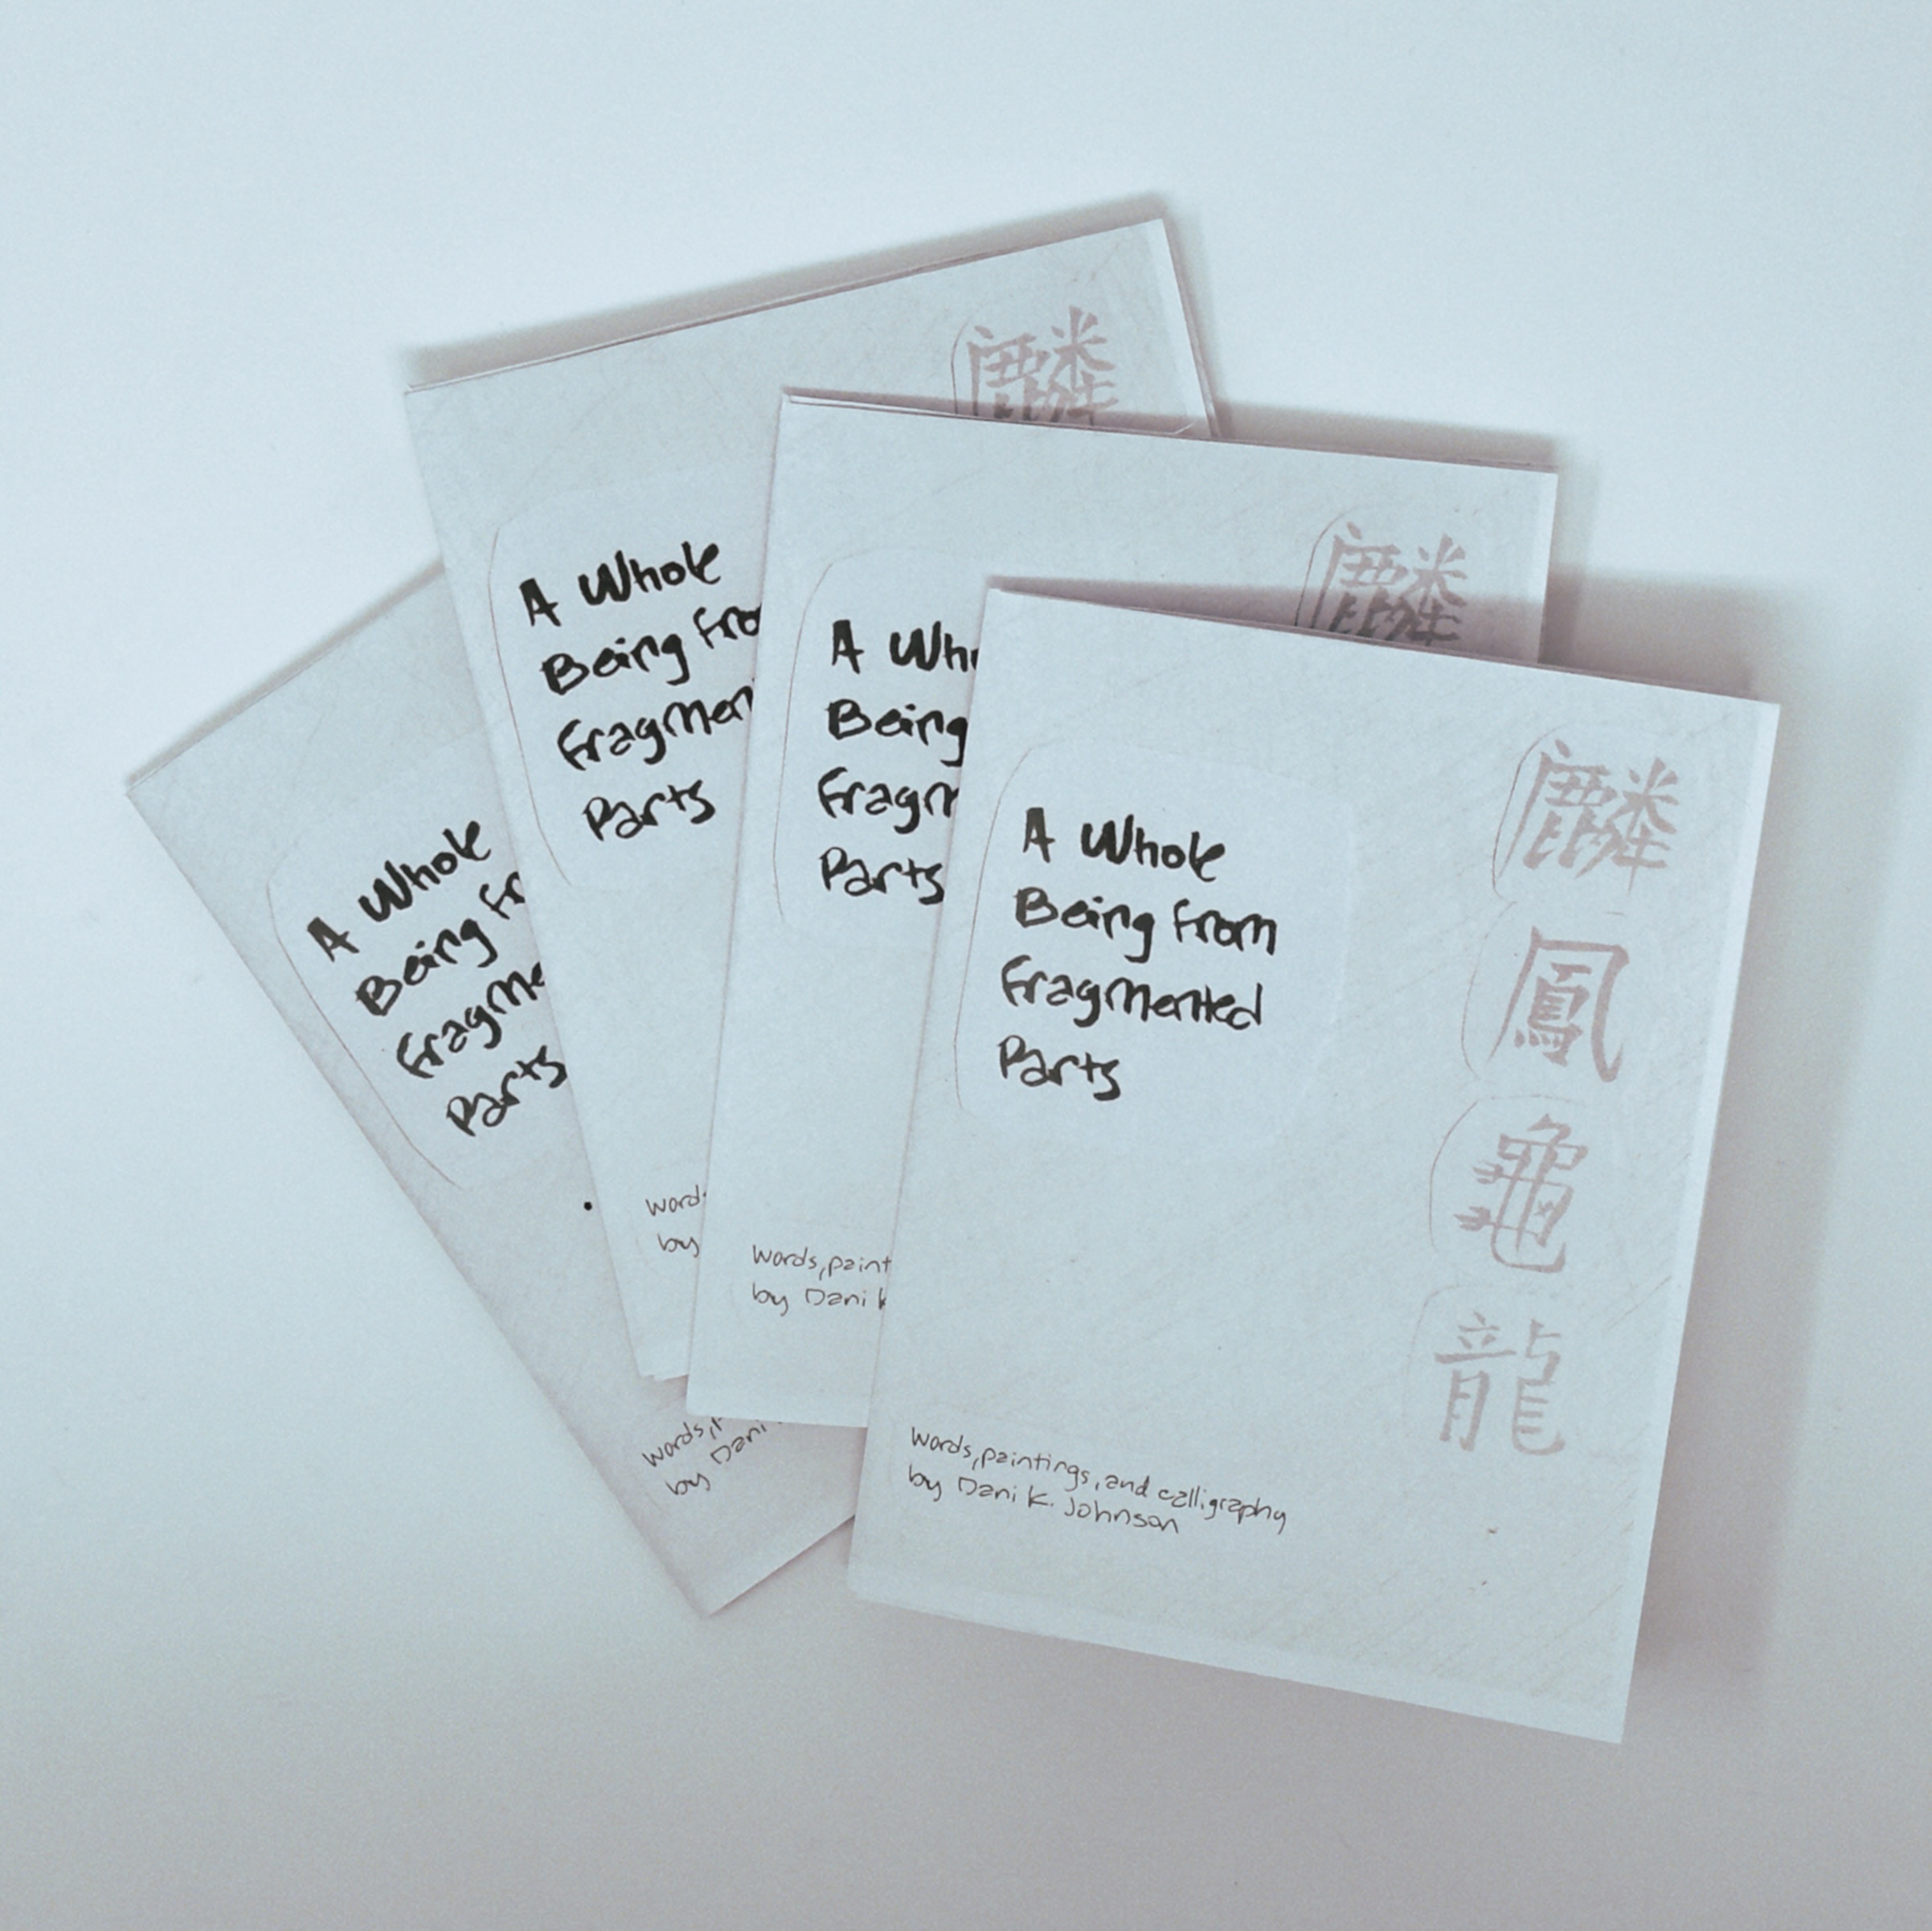 A Whole
Being Fr
Fragme
Parts
words,
by Dani
麟
A Whole
Being Fro
Fragmen
Parts
word
by
麟
A Who
Being
Fragm
Parts
words, paint
by Dani K
麟
鳳
龜
龍
A Whole
Being From
Fragmented
Parts
words, paintings, and calligraphy
by Dani K. Johnson